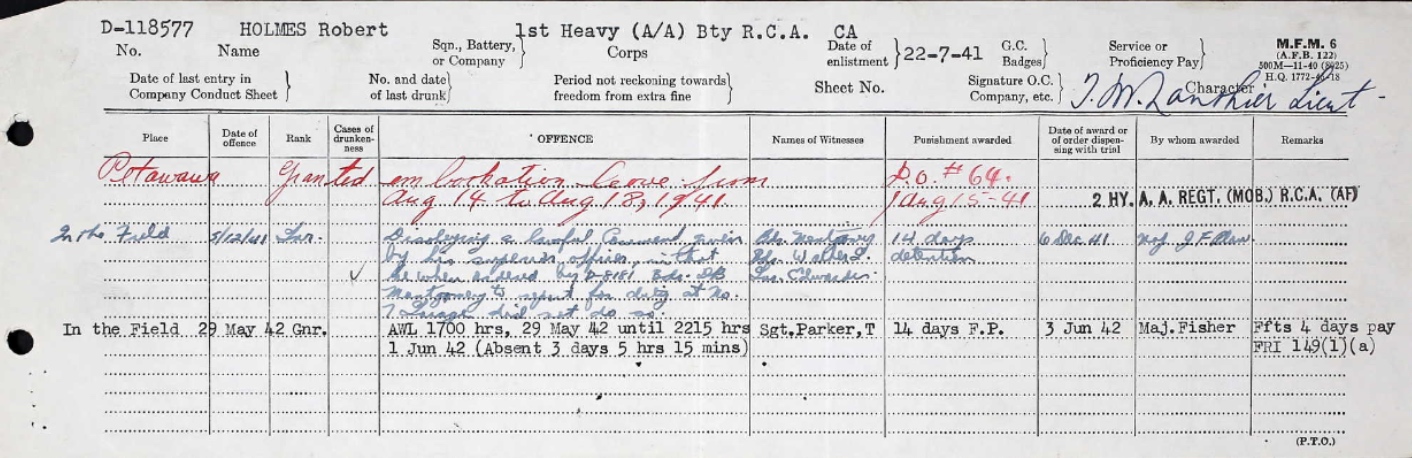 D-118577 HOLMES Robert 1st Heavy (A/A) Bty R.C.A. CA
No. Name Sqn., Battery, or Company Corps Date of enlistment 22-7-41 G.C. Badges Service or Proficiency Pay M.F.M. 6
(A.F.B. 122)
500M—11-40
H.Q. 1772
Date of last entry in Company Conduct Sheet No. and date of last drunk Period not reckoning towards freedom from extra fine Sheet No. Signature O.C. Company, etc. Character
Lieut
Place Date of offence Rank Cases of drunken-ness OFFENCE Names of Witnesses Punishment awarded Date of award or of order dispen-sing with trial By whom awarded Remarks
Petawawa Granted embarkation Leave from D.O. # 64.
Aug 14 to Aug 18, 1941 Aug 15-41 2 HY. A. A. REGT. (MOB.) R.C.A. (AF)
In the Field 5/12/41 Gnr. Disobeying a lawful Command given Bdr. Montgomery 14 days 6 Dec 41 Maj. J F
by his superior officer, in that detention
he when ordered by D-8181 Bdr. Edwards
Montgomery to report for duty at No.
7 did not do so.
In the Field 29 May 42 Gnr. AWL 1700 hrs, 29 May 42 until 2215 hrs Sgt.Parker,T 14 days F.P. 3 Jun 42 Maj.Fisher Ffts 4 days pay
1 Jun 42 (Absent 3 days 5 hrs 15 mins) FRI 149(1)(a)
(P.T.O.)